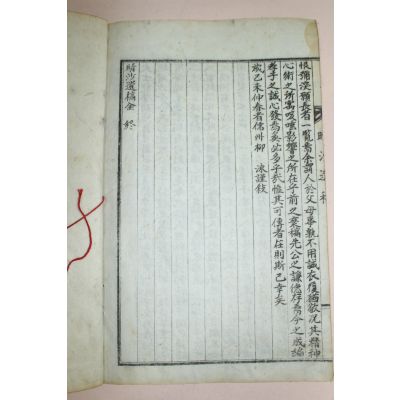 恨彌深願長者一覽焉余謂人於父母事孰不用誠衣履猶欲况其精神
心術之所寓咳唾影響之所在乎前之裒稿先公之謙德存焉今之成編
孝子之誠心發焉矣此多乎哉惟其可傳者在則斯已幸矣
歲乙未仲春者儒州柳 泳謹敍
晴沙遺稿全 終
晴沙遺稿